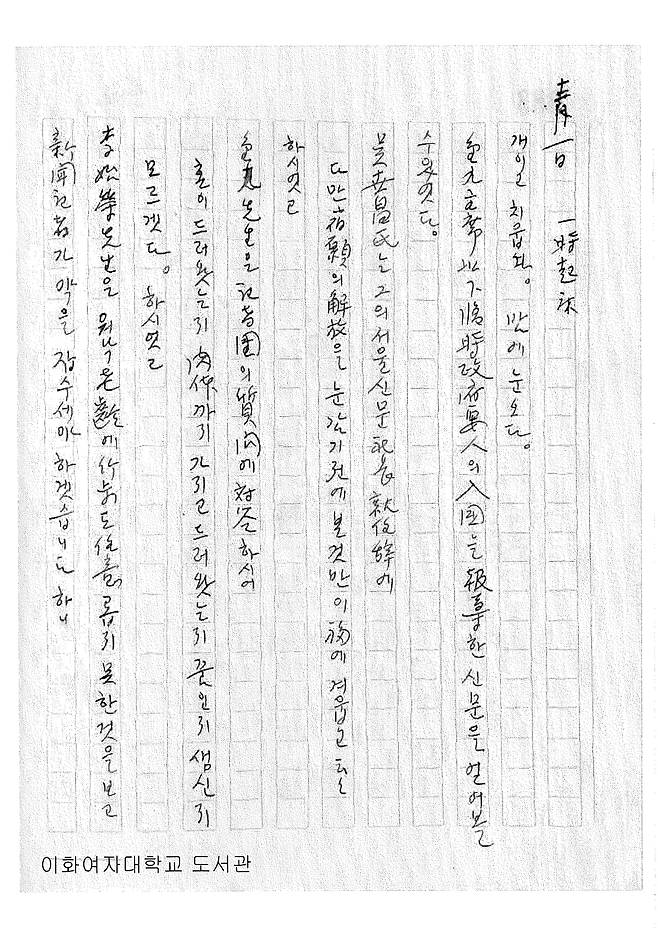 青一日 一時起床
개이고 치웁다。 밤에 눈오다。
金九主席 以下 臨時政府要人의 入國을 報導한 신문을 얻어볼
수 있엇다。
吳世昌氏는 그의 서울신문 社長 就任辭에
다만 宿願의 解放을 눈감기전에 본것만이 福에 겨웁고 또는
하시엿고
金九先生은 記者團의 質問에 對答하시여
혼이 드러왓는지 肉体까지 가지고 드러왓는지 꿈인지 생신지
모르겟다。 하시엿고
李始榮先生은 워낙 老齡에 行動도 任意롭지 못한것을 보고
新聞記者가 약을 잡수세야 하겟습니다 하니
이화여자대학교 도서관